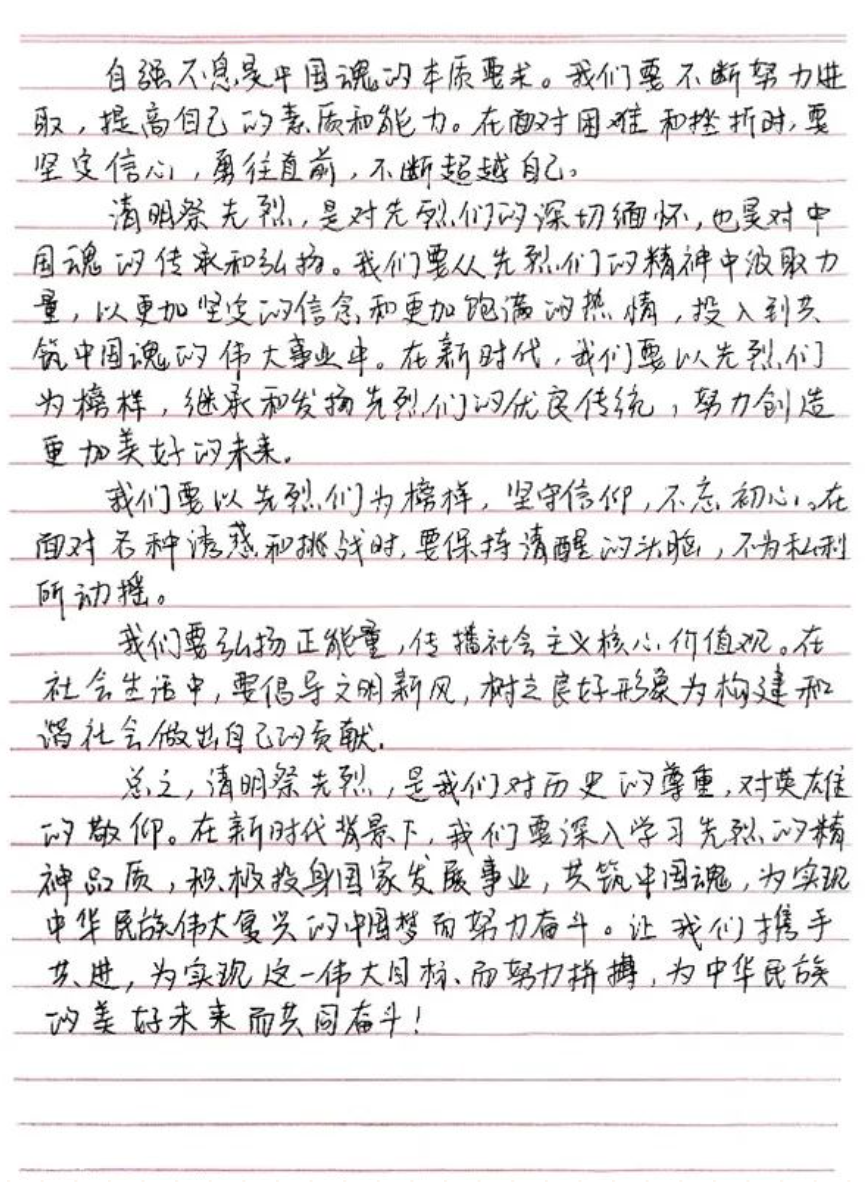 自强不息是中国魂的本质要求。我们要不断努力进
取，提高自己的素质和能力。在面对困难和挫折时，要
坚定信心，勇往直前，不断超越自己。
清明祭先烈，是对先烈们的深切缅怀，也是对中
国魂的传承和弘扬。我们要从先烈们的精神中汲取力
量，以更加坚定的信念和更加饱满的热情，投入到共
筑中国魂的伟大事业中。在新时代，我们要以先烈们
为榜样，继承和发扬先烈们的优良传统，努力创造
更加美好的未来。
我们要以先烈们为榜样，坚守信仰，不忘初心。在
面对各种诱惑和挑战时，要保持清醒的头脑，不为私利
所动摇。
我们要弘扬正能量，传播社会主义核心价值观。在
社会生活中，要倡导文明新风，树立良好形象为构建和
谐社会做出自己的贡献。
总之，清明祭先烈，是我们对历史的尊重，对英雄
的敬仰。在新时代背景下，我们要深入学习先烈的精
神品质，积极投身国家发展事业，共筑中国魂，为实现
中华民族伟大复兴的中国梦而努力奋斗。让我们携手
共进，为实现这一伟大目标、而努力拼搏，为中华民族
的美好未来而共同奋斗！